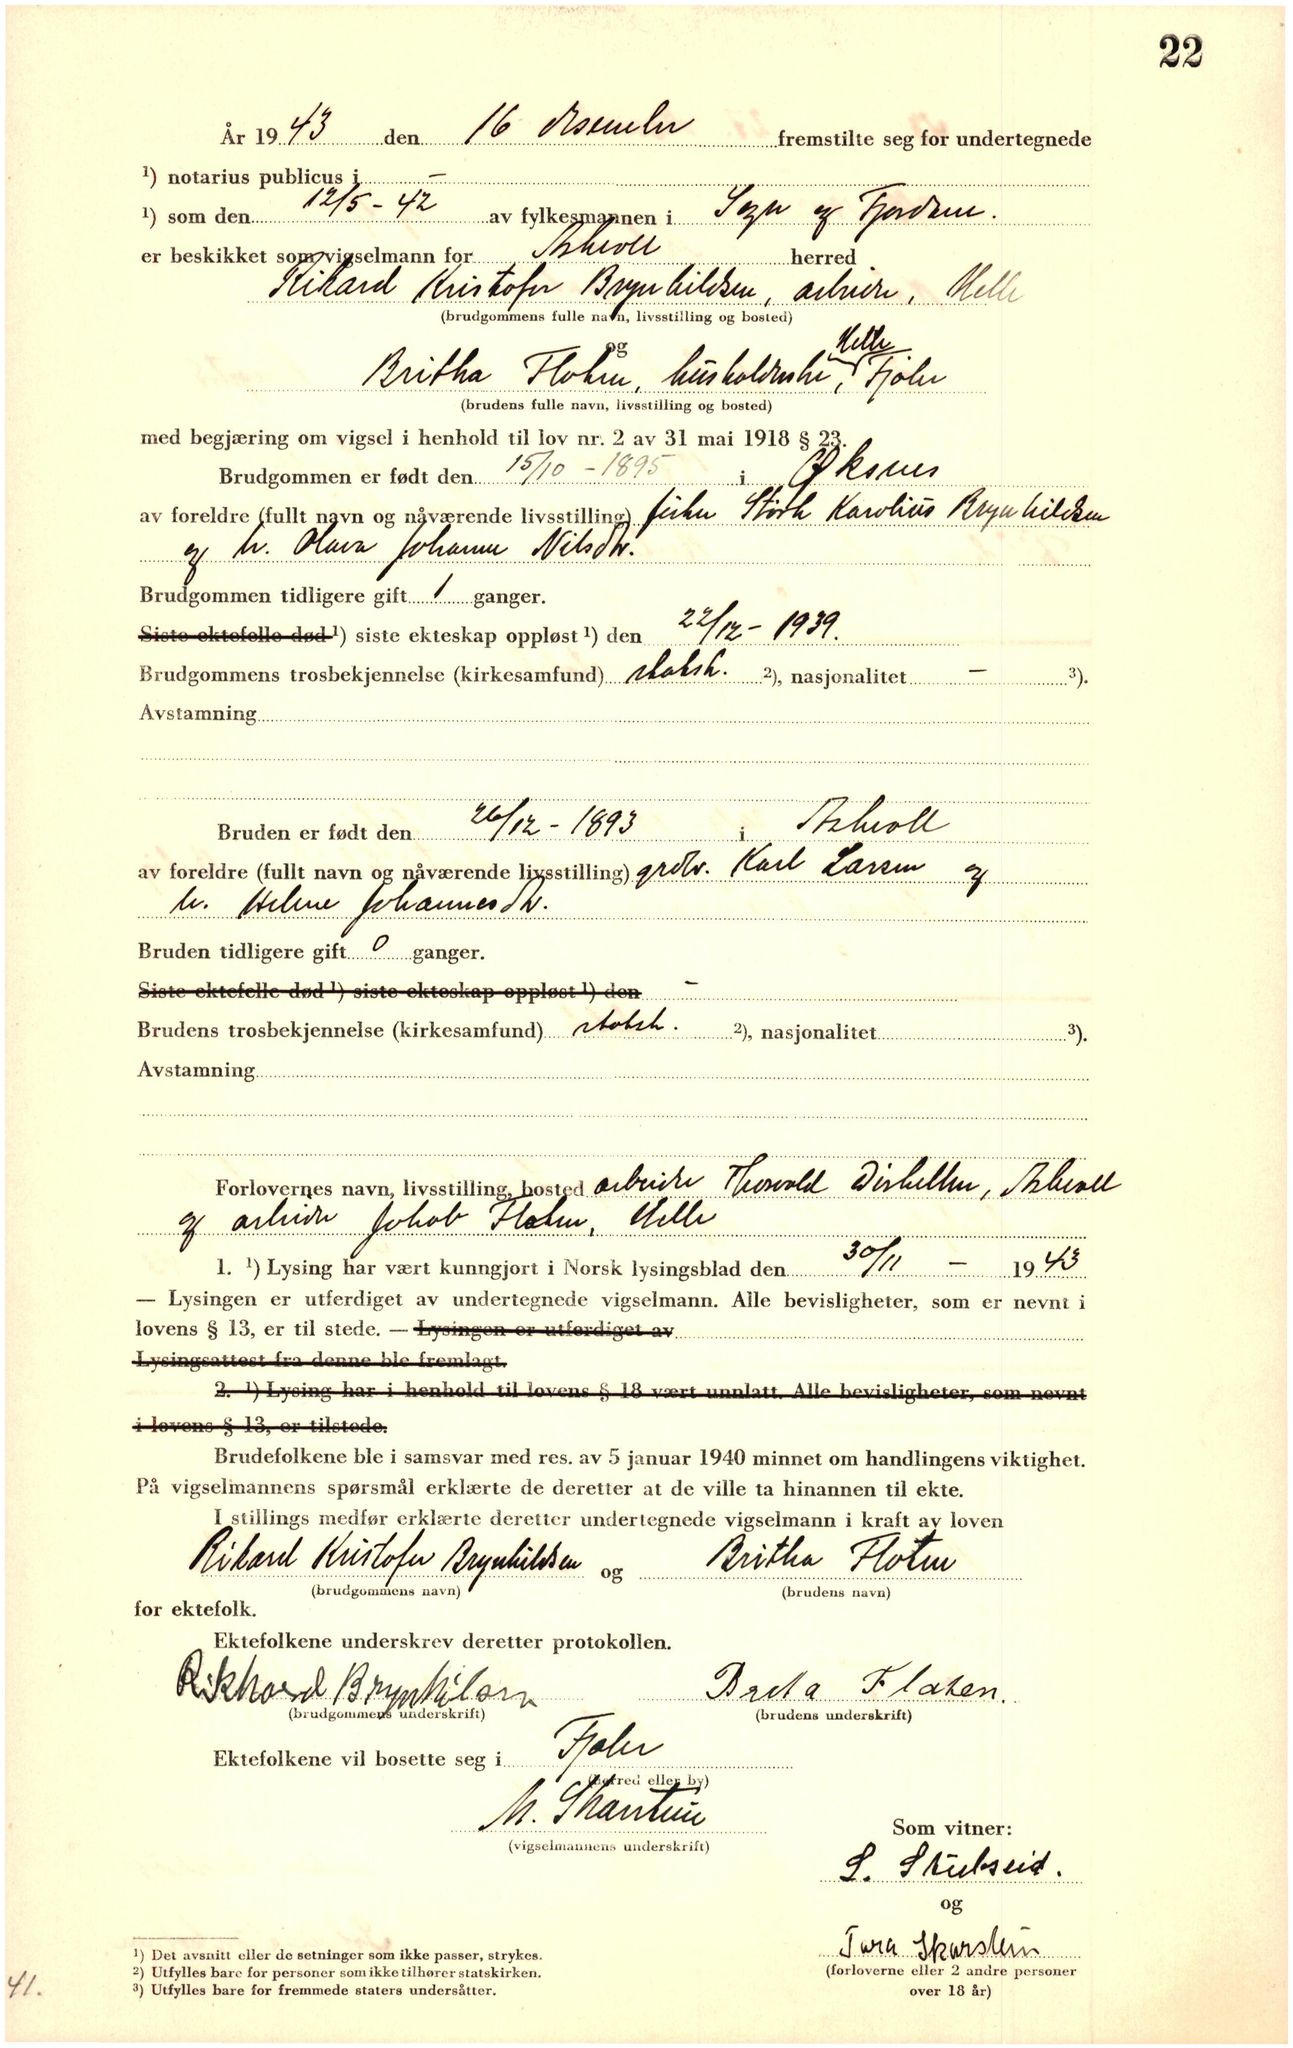 22
År 1943 den 16 desember fremstilte seg for undertegnede
¹) notarius publicus i –
¹) som den 12/5 - 42 av fylkesmannen i Sogn og Fjordane.
er beskikket som vigselmann for Askvoll herred
Rikard Kristofer Brynhildsen, arbeider, Helle
(brudgommens fulle navn, livsstilling og bosted)
og
Helle
Britha Flaten, husholderske, Fjaler
(brudens fulle navn, livsstilling og bosted)
med begjæring om vigsel i henhold til lov nr. 2 av 31 mai 1918 § 23.
Brudgommen er født den 15/10 - 1895 i Øksnes
av foreldre (fullt navn og nåværende livsstilling) fisker Karolius Brynhildsen
og h. Olava Johanne Nilsdtr.
Brudgommen tidligere gift 1 ganger.
Siste ektefelle død ¹) siste ekteskap oppløst ¹) den 22/12 - 1939.
Brudgommens trosbekjennelse (kirkesamfund) statsk. ²), nasjonalitet – ³).
Avstamning
Bruden er født den 26/12 - 1893 i Askvoll
av foreldre (fullt navn og nåværende livsstilling) grdbr. Karl Larsen og
h. Helene Johannesdtr.
Bruden tidligere gift 0 ganger.
Siste ektefelle død ¹) siste ekteskap oppløst ¹) den –
Brudens trosbekjennelse (kirkesamfund) statsk. ²), nasjonalitet ³).
Avstamning
Forlovernes navn, livsstilling, bosted arbeider Thorvald Askvoll
og arbeider Jakob Flaten, Helle
1. ¹) Lysing har vært kunngjort i Norsk lysingsblad den 30/11 – 1943
— Lysingen er utferdiget av undertegnede vigselmann. Alle bevisligheter, som er nevnt i
lovens § 13, er til stede. — Lysingen er utferdiget av
Lysingsattest fra denne ble fremlagt.
2. ¹) Lysing har i henhold til lovens § 18 vært unnlatt. Alle bevisligheter, som nevnt
i lovens § 13, er tilstede.
Brudefolkene ble i samsvar med res. av 5 januar 1940 minnet om handlingens viktighet.
På vigselmannens spørsmål erklærte de deretter at de ville ta hinannen til ekte.
I stillings medfør erklærte deretter undertegnede vigselmann i kraft av loven
Rikard Kristofer Brynhildsen og Britha Flaten
(brudgommens navn) (brudens navn)
for ektefolk.
Ektefolkene underskrev deretter protokollen.
Rikhard Brynhilsen Breta Flaten.
(brudgommens underskrift) (brudens underskrift)
Ektefolkene vil bosette seg i Fjaler
(herred eller by)
M. Skarstein
(vigselmannens underskrift)
Som vitner:
S. Stubseid.
og
Tura Skarstein
(forloverne eller 2 andre personer
over 18 år)
¹) Det avsnitt eller de setninger som ikke passer, strykes.
²) Utfylles bare for personer som ikke tilhører statskirken.
³) Utfylles bare for fremmede staters undersåtter.
41.